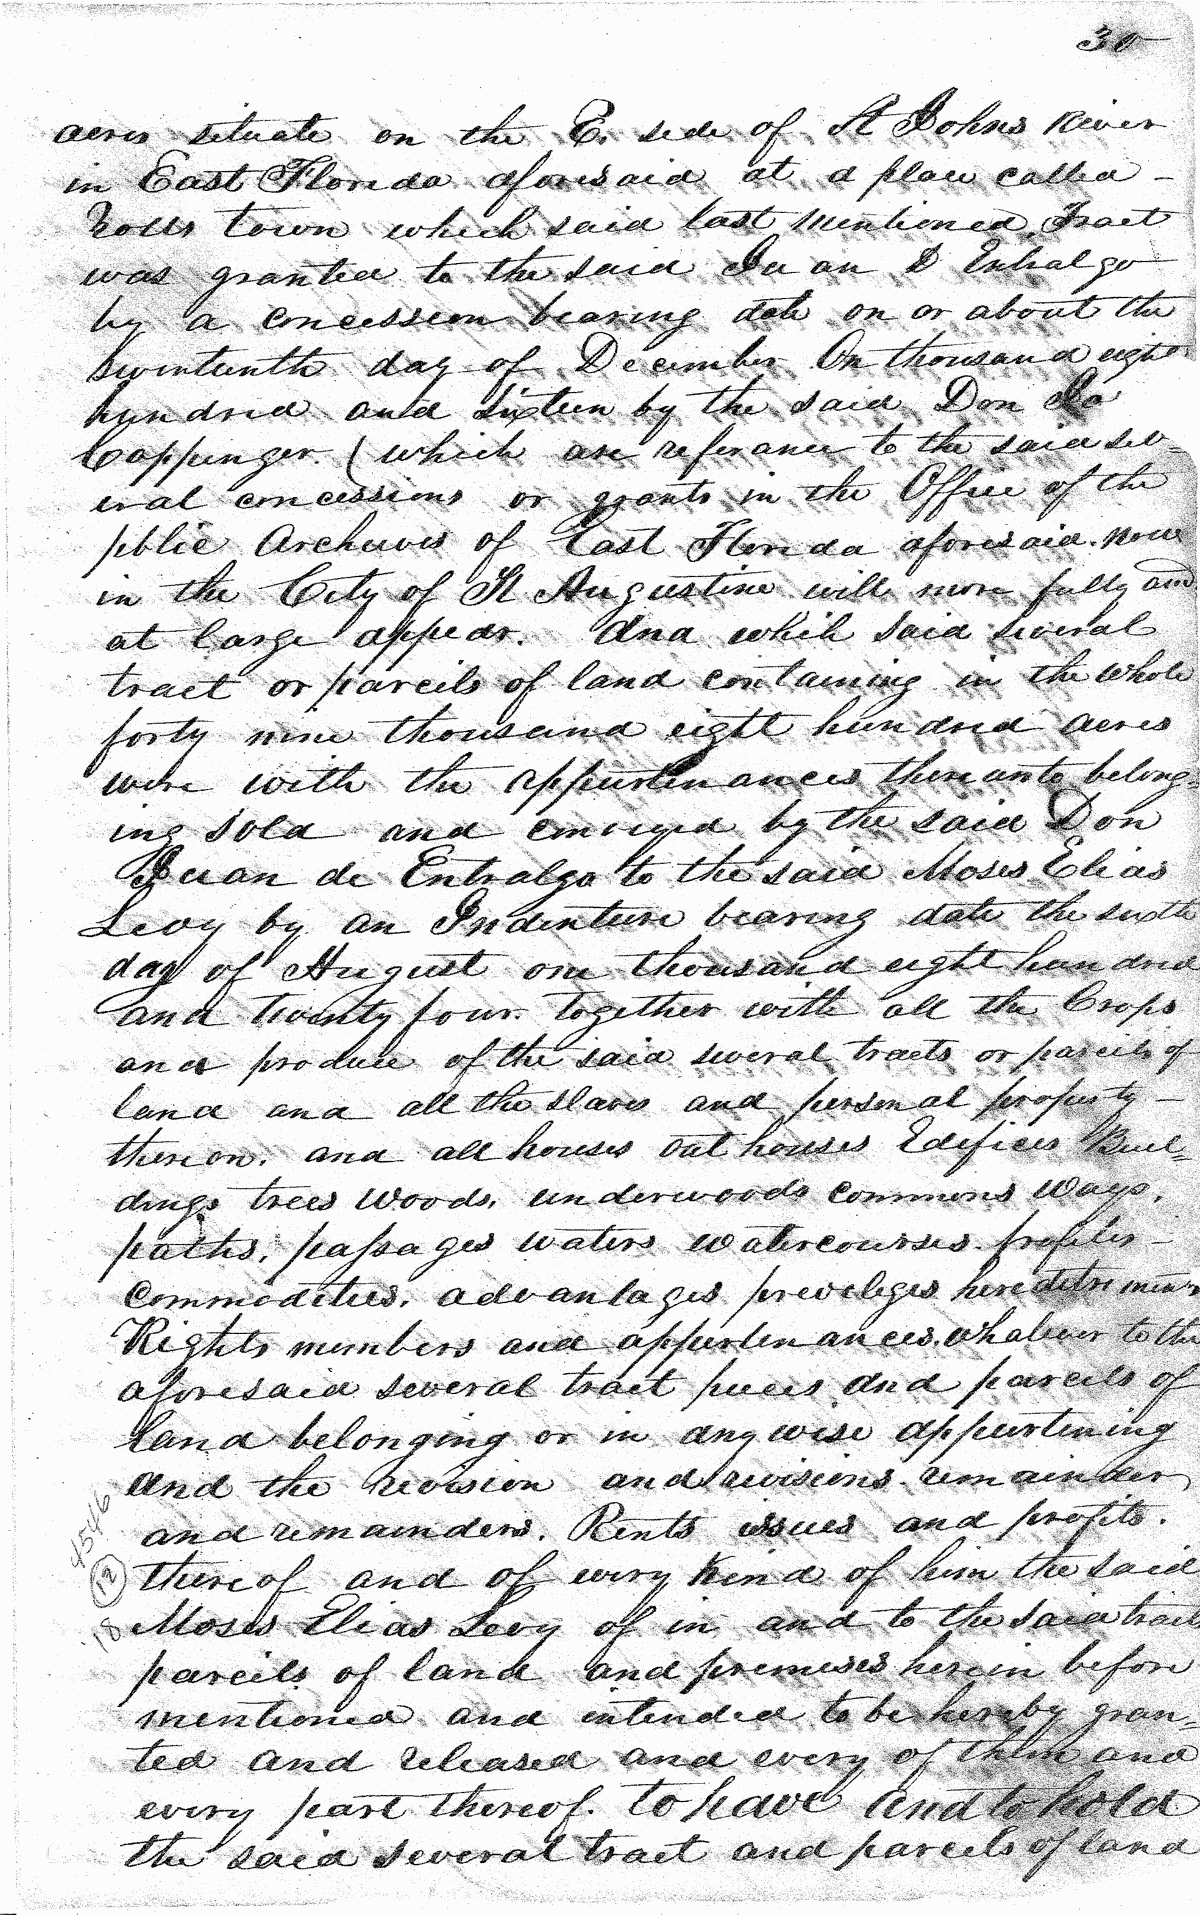 30
acres situate on the E. side of St Johns River
in East Florida aforesaid at a place called -
Rolls town which said last mentioned Tract
was granted to the said Juan D Entralgo
by a concession bearing date on or about the
seventeenth day of December On thousand eight
hundred and sixteen by the said Don Jo
Coppenger. (which are referance to the said sev=
eral concessions or grants in the Office of the
pblic Archives of East Florida aforesaid. now
in the City of St Augustine will more fully and
at large appear. And which said several
tract or parcels of land containing in the whole
forty nine thousand eight hundred acres
were with the appurtenances thereunto belong=
ing sold and conveyed by the said Don
Juan de Entralgo to the said Moses Elias
Levy by an Indenture bearing date the sixth
day of August one thousand eight hundred
and twenty four. together with all the Crops
and produce of the said several tracts or parcels of
land and all the slaves and personal property -
thereon. and all houses out houses Edifices Buil=
dings trees woods, underwoods commons ways,
paths, passages waters watercourses. profiter -
Commodities, advantages priveleges
Rights members and appurtenances. whatever to the
aforesaid several tract pieces and parcels of
land belonging or in any wise appurtening
and the revision and revisions. remainder
and remainders. Rents issues and profits.
thereof and of every kind of him the said
Moses Elias Levy of in and to the said tract
parcels of land and premises herein before
mentioned and intended to be hereby gran=
ted and released and every of them and
every part thereof. to have and to hold
the said several tract and parcels of land
4546
12
18